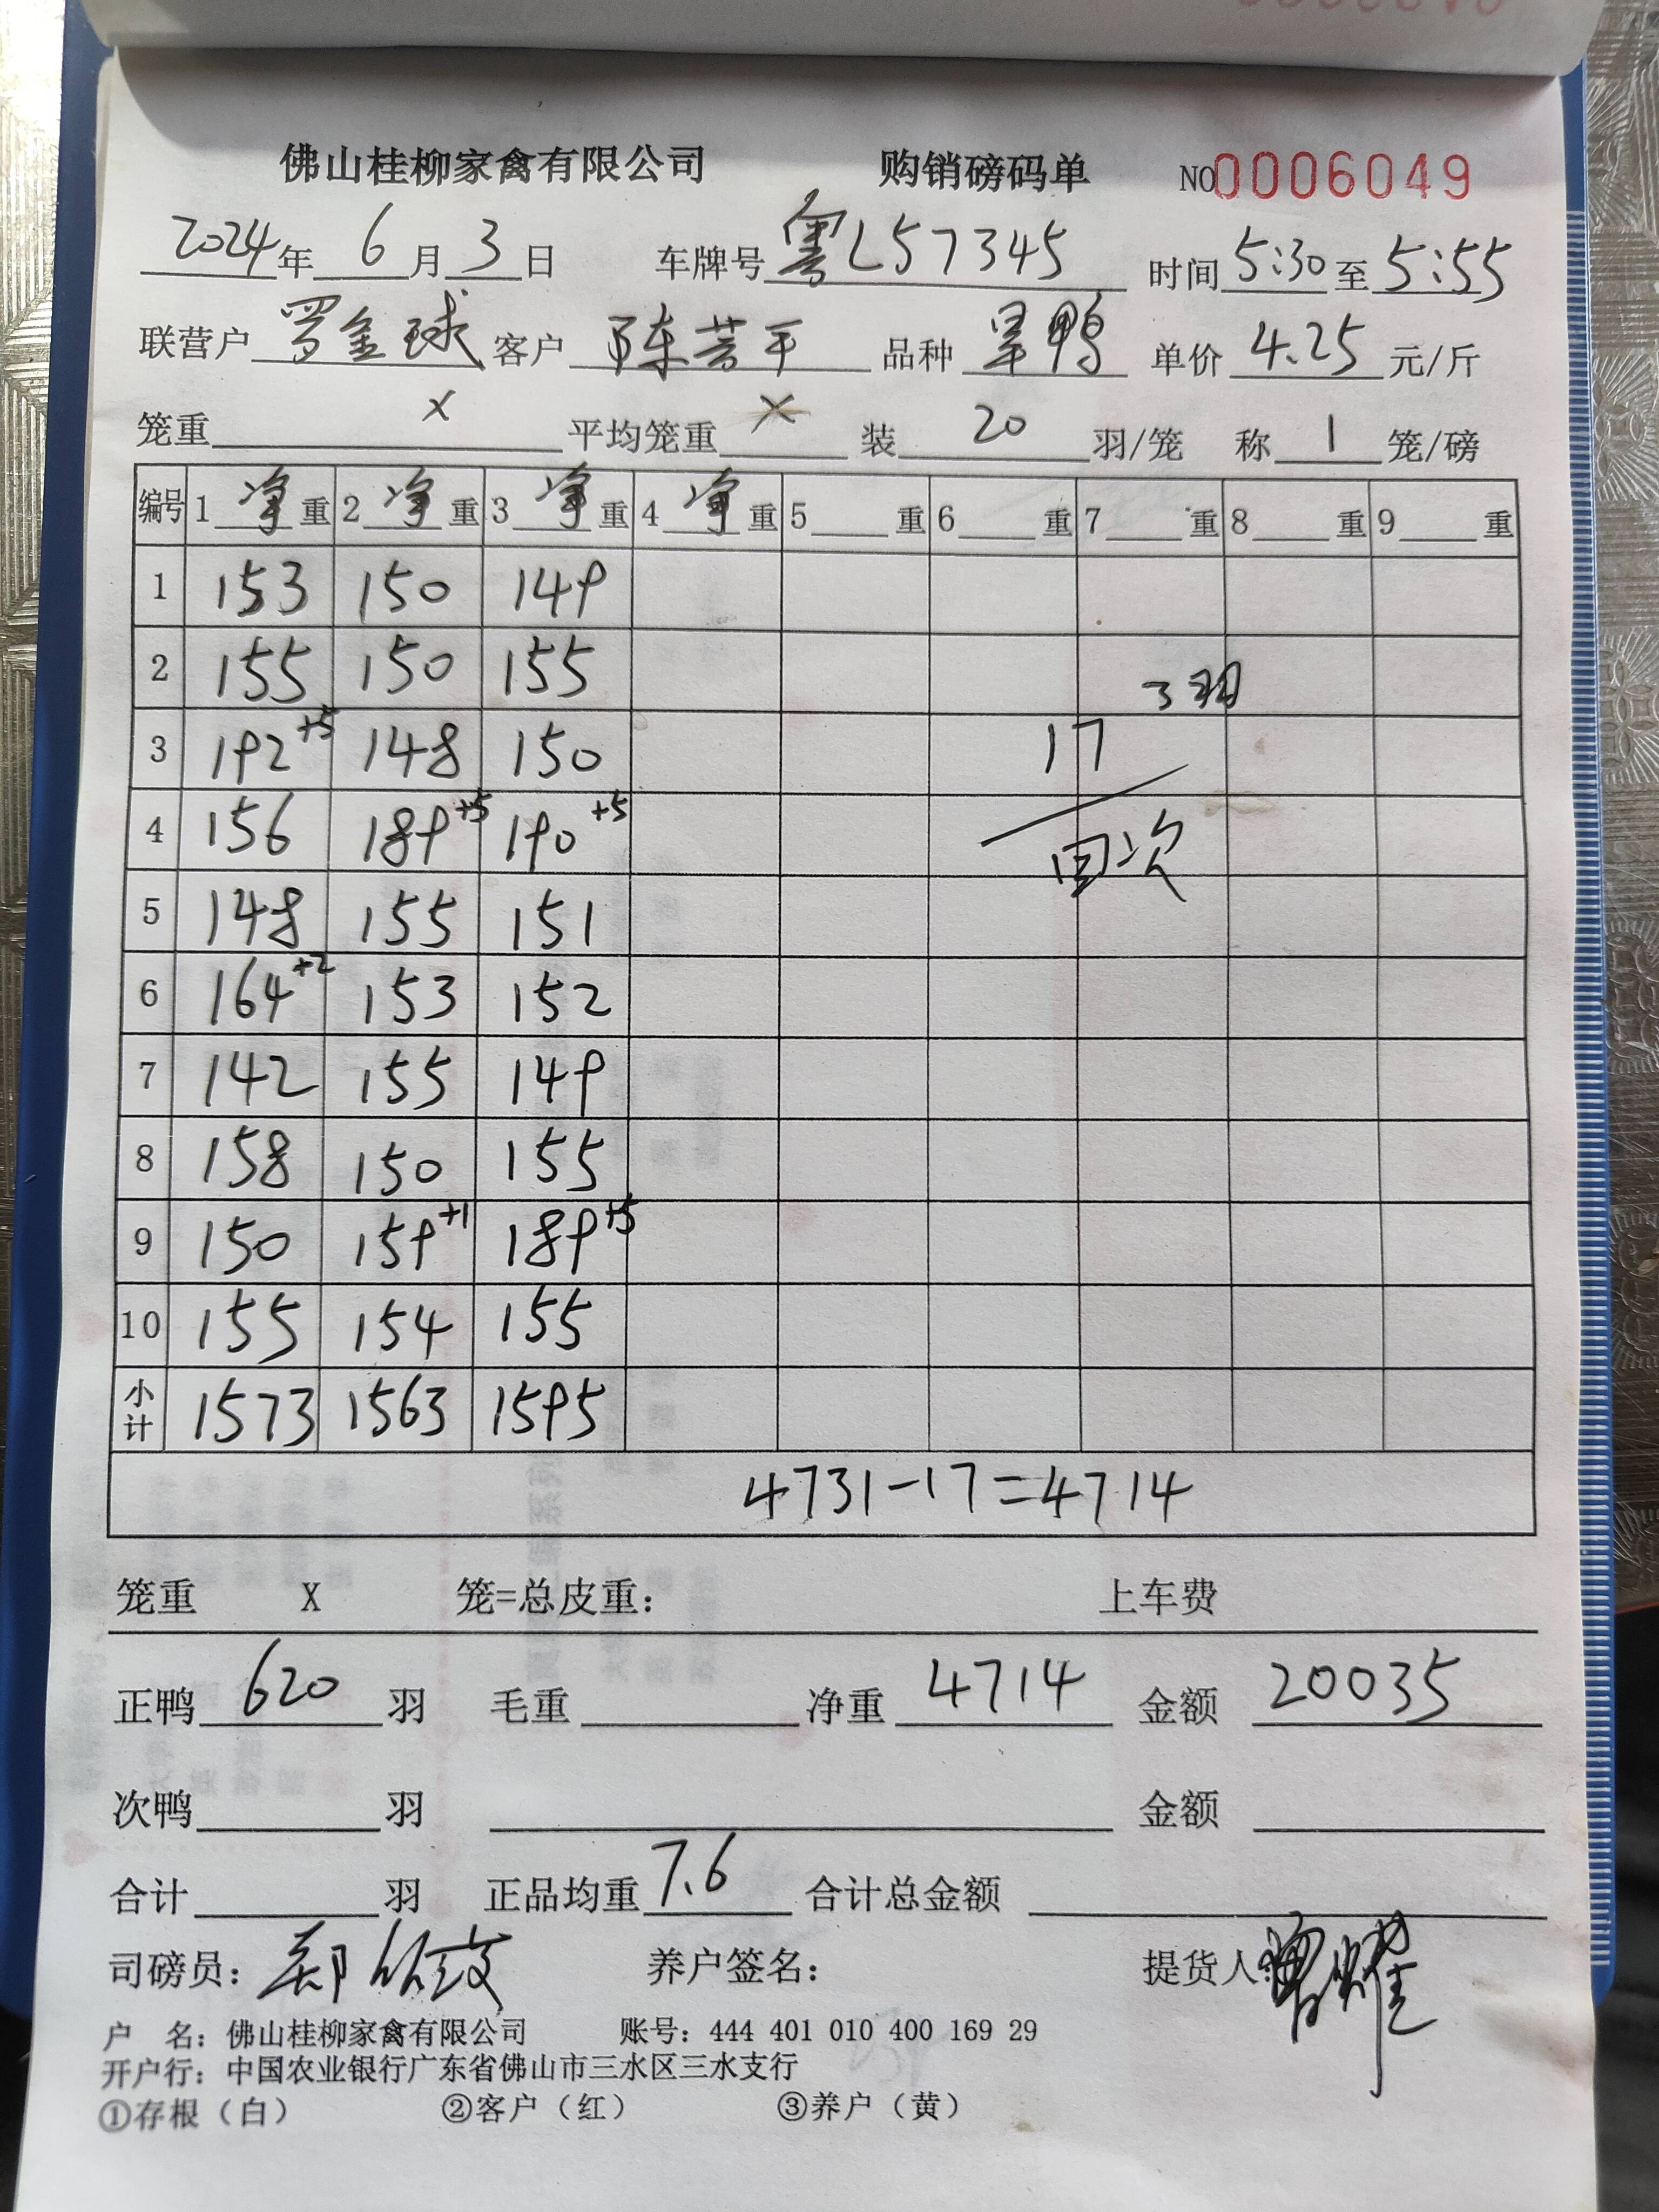 佛山桂柳家禽有限公司 购销磅码单 NO0006049
2024年6月3日 车牌号粤L57345 时间5:30至5:55
联营户罗金球 客户陈芳平 品种旱鸭 单价4.25元/斤
笼重 x 平均笼重 x 装20羽/笼 称1笼/磅
编号 1净重 2净重 3净重 4净重 5重 6重 7重 8重 9重
1 153 150 149
2 155 150 155
3羽
3 192+5 148 150
17
4 156 189+5 190+5
回次
5 148 155 151
6 164+2 153 152
7 142 155 149
8 158 150 155
9 150 159+1 189+5
10 155 154 155
小计 1573 1563 1595
4731-17=4714
笼重 X 笼=总皮重： 上车费
正鸭620羽 毛重 净重4714 金额20035
次鸭 羽 金额
合计 羽 正品均重7.6 合计总金额
司磅员： 养户签名： 提货人:
户 名：佛山桂柳家禽有限公司 账号：444 401 010 400 169 29
开户行：中国农业银行广东省佛山市三水区三水支行
①存根（白） ②客户（红） ③养户（黄）